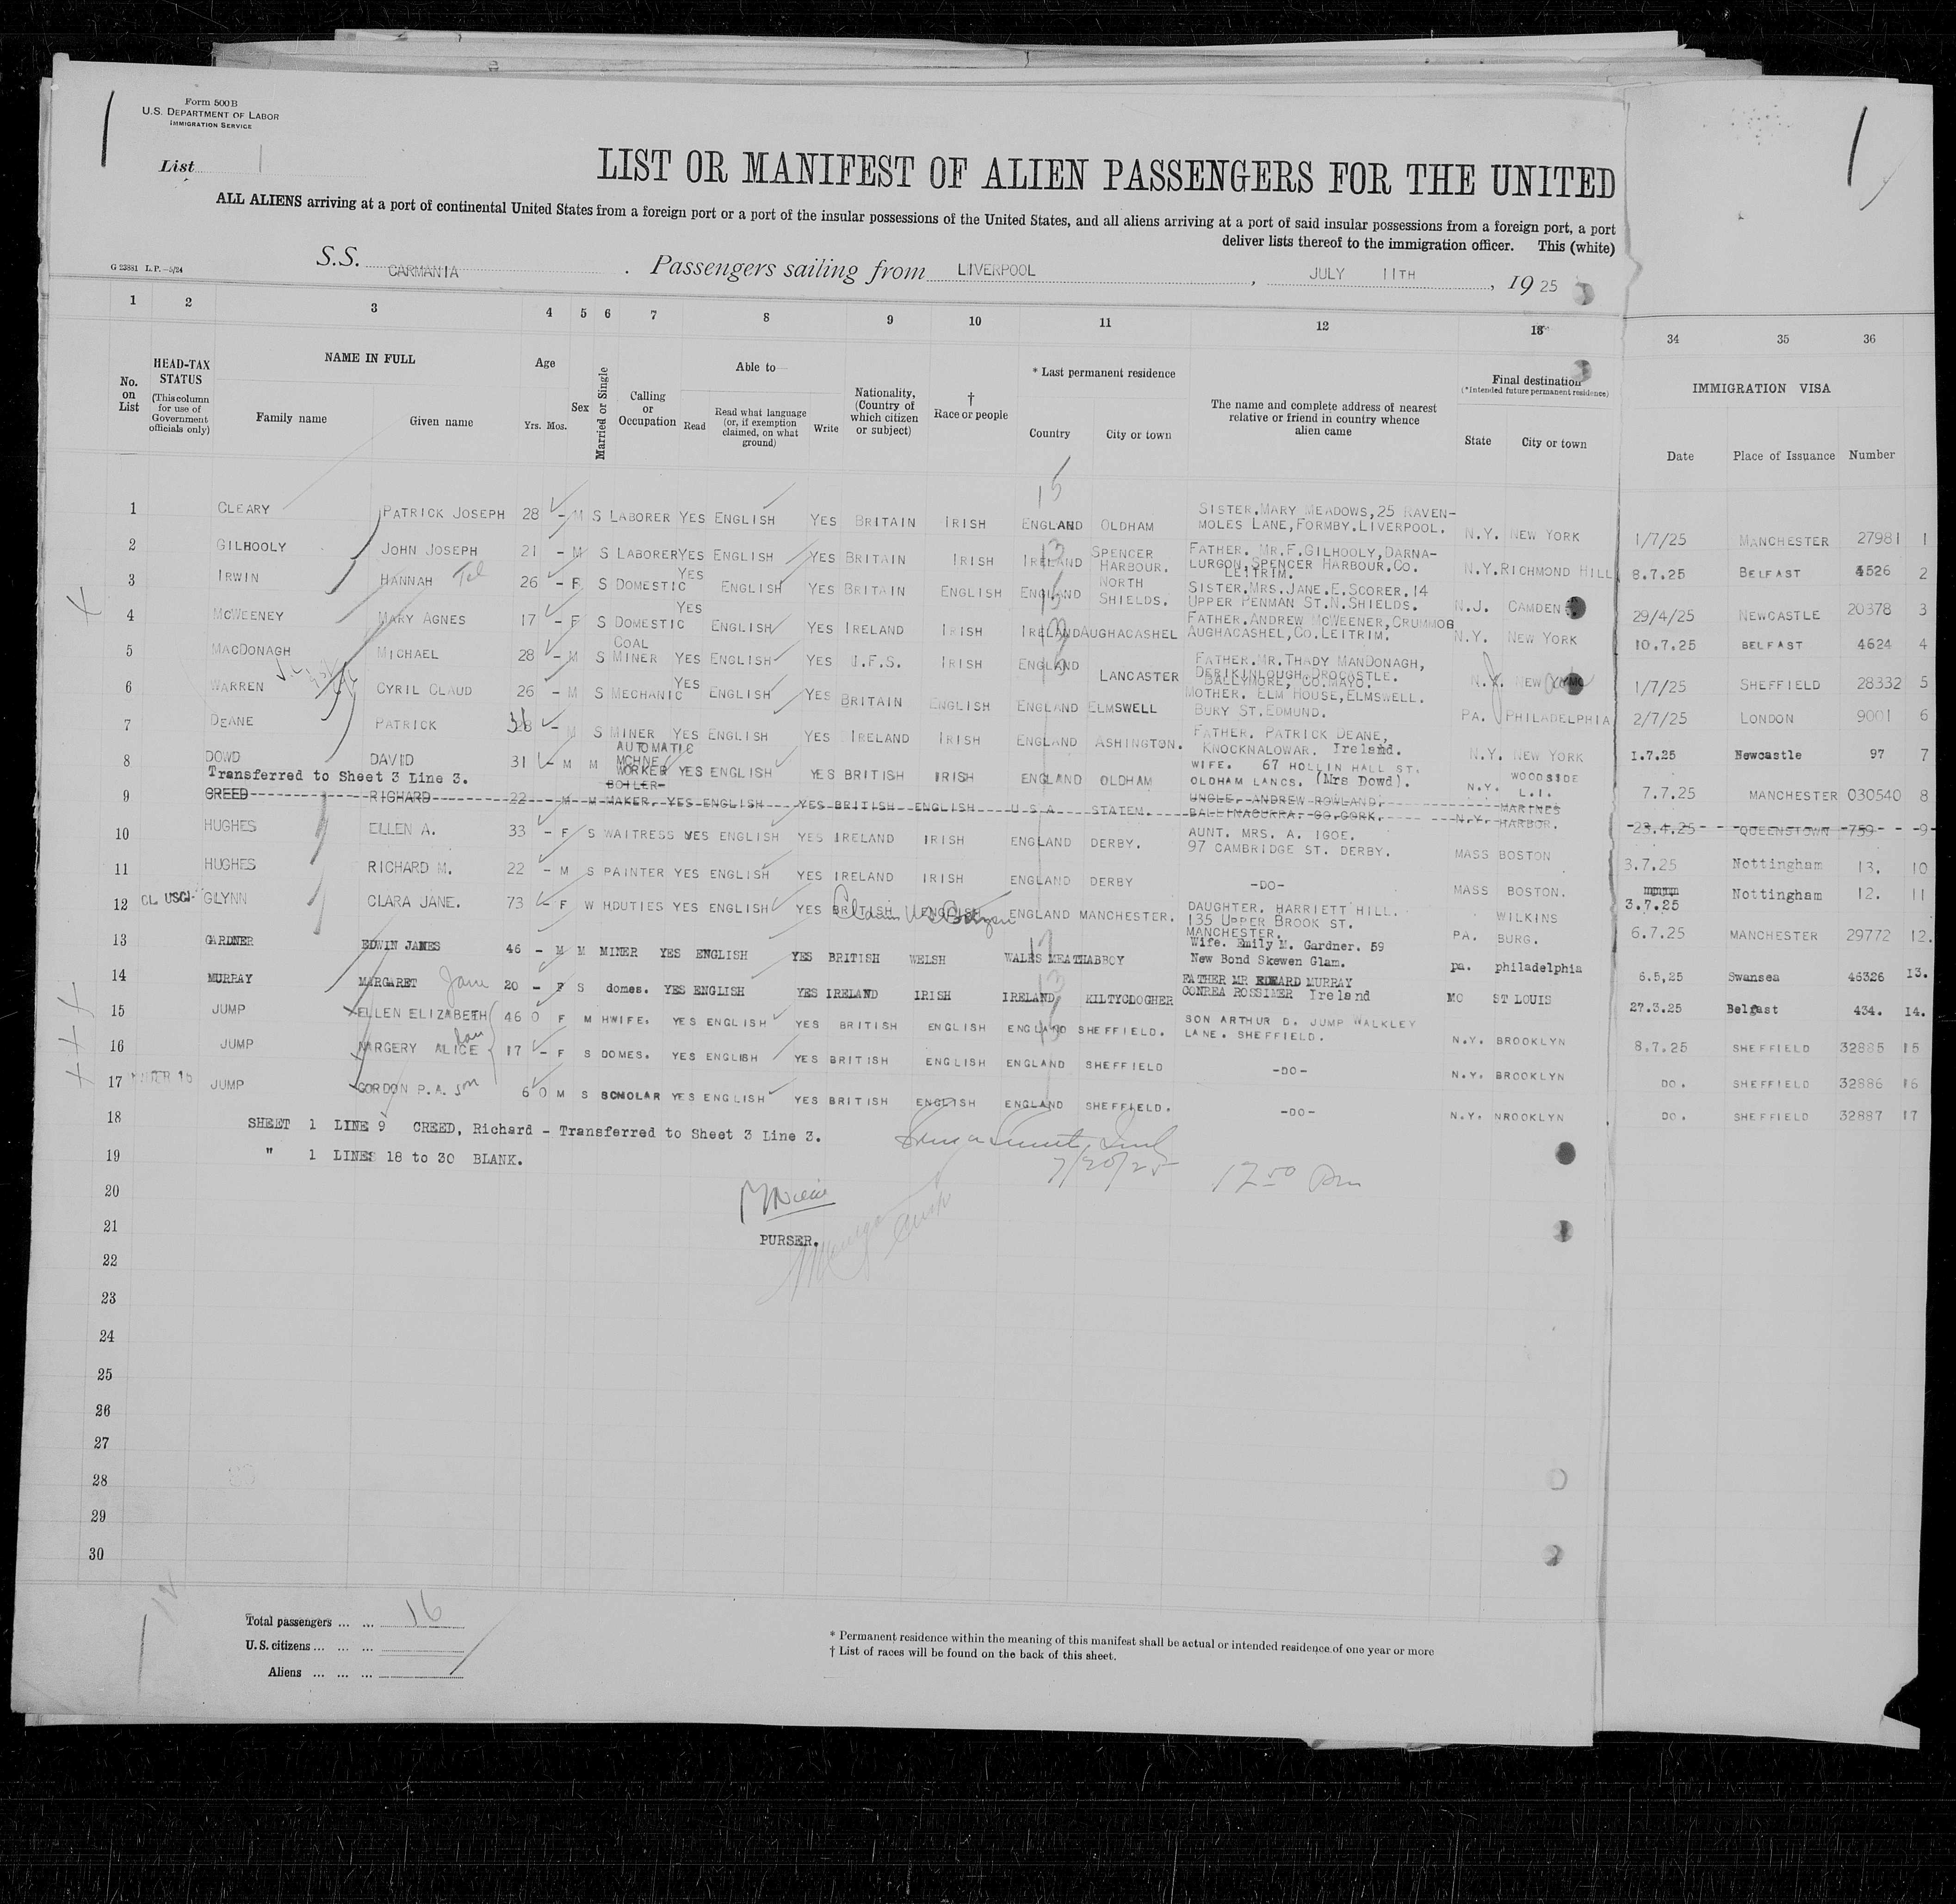 Form 500 B
U.S. DEPARTMENT OF LABOR
IMMIGRATION SERVICE
List 1
LIST OR MANIFEST OF ALIEN PASSENGERS FOR THE UNITED
ALL ALIENS arriving at a port of continental United States from a foreign port or a port of the insular possessions of the United States, and all aliens arriving at a port of said insular possessions from a foreign port, a port
deliver lists thereof to the immigration officer. This (white)
G 23881 L.P.—5/24
S.S. CARMANIA . Passengers sailing from LIVERPOOL , JULY 11TH , 19 25
1 2 3 4 5 6 7 8 9 10 11 12 13 34 35 36
No. on List
HEAD-TAX STATUS (This column for use of Government officials only)
NAME IN FULL Family name Given name
Age Yrs. Mos.
Sex
Married or Single
Calling or Occupation
Able to— Read Read what language (or, if exemption claimed, on what ground) Write
Nationality, (Country of which citizen or subject)
† Race or people
* Last permanent residence Country City or town
The name and complete address of nearest relative or friend in country whence alien came
Final destination (*Intended future permanent residence) State City or town
IMMIGRATION VISA Date Place of Issuance Number
1 CLEARY PATRICK JOSEPH 28 - M S LABORER YES ENGLISH YES BRITAIN IRISH ENGLAND OLDHAM SISTER.MARY MEADOWS,25 RAVEN-MOLES LANE,FORMBY.LIVERPOOL. N.Y. NEW YORK 1/7/25 MANCHESTER 27981 1
2 GILHOOLY JOHN JOSEPH 21 - M S LABORER YES ENGLISH YES BRITAIN IRISH IRELAND SPENCER HARBOUR. FATHER. MR.F.GILHOOLY,DARNA-LURGON,SPENCER HARBOUR.CO. LEITRIM. N.Y. RICHMOND HILL 8.7.25 BELFAST 4526 2
3 IRWIN HANNAH 26 - F S DOMESTIC YES ENGLISH YES BRITAIN ENGLISH ENGLAND NORTH SHIELDS. SISTER.MRS.JANE.E.SCORER.14 UPPER PENMAN ST.N.SHIELDS. N.J. CAMDEN 29/4/25 NEWCASTLE 20378 3
4 MCWEENEY MARY AGNES 17 - F S DOMESTIC YES ENGLISH YES IRELAND IRISH IRELAND AUGHACASHEL FATHER.ANDREW MCWEENER,CRUMMOB AUGHACASHEL,CO.LEITRIM. N.Y. NEW YORK 10.7.25 BELFAST 4624 4
5 MACDONAGH MICHAEL 28 - M S COAL MINER YES ENGLISH YES I.F.S. IRISH ENGLAND LANCASTER FATHER.MR.THADY MANDONAGH, DERIKINLOUGH,DROCASTLE. BALLYMORE, CO.MAYO. N.Y. NEW 1/7/25 SHEFFIELD 28332 5
6 WARREN CYRIL CLAUD 26 - M S MECHANIC YES ENGLISH YES BRITAIN ENGLISH ENGLAND ELMSWELL MOTHER. ELM HOUSE,ELMSWELL. BURY ST.EDMUND. PA. PHILADELPHIA 2/7/25 LONDON 9001 6
7 DEANE PATRICK 31 - M S MINER YES ENGLISH YES IRELAND IRISH ENGLAND ASHINGTON. FATHER. PATRICK DEANE, KNOCKNALOWAR. Ireland. N.Y. NEW YORK 1.7.25 Newcastle 97 7
8 DOWD DAVID 31 - M M AUTOMATIC MCHNE WORKER YES ENGLISH YES BRITISH IRISH ENGLAND OLDHAM WIFE. 67 HOLLIN HALL ST. OLDHAM LANCS. (Mrs Dowd). N.Y. WOODSIDE L.I. 7.7.25 MANCHESTER 030540 8
Transferred to Sheet 3 Line 3.
9 CREED RICHARD 22 - M M BOILER-MAKER. YES ENGLISH YES BRITISH ENGLISH U.S.A. STATEM. UNCLE. ANDREW ROWLAND. BALLINACURRA. CO.CORK. N.Y. MARINES HARBOR. 23.4.25 QUEENSTOWN 759 9
10 HUGHES ELLEN A. 33 - F S WAITRESS YES ENGLISH YES IRELAND IRISH ENGLAND DERBY. AUNT. MRS. A. IGOE. 97 CAMBRIDGE ST. DERBY. MASS BOSTON 3.7.25 Nottingham 13. 10
11 HUGHES RICHARD M. 22 - M S PAINTER YES ENGLISH YES IRELAND IRISH ENGLAND DERBY -DO- MASS BOSTON. 3.7.25 Nottingham 12. 11
12 CL USCI- GLYNN CLARA JANE. 73 - F W HDUTIES YES ENGLISH YES BRITISH ENGLISH Claim U S Citizen ENGLAND MANCHESTER. DAUGHTER. HARRIETT HILL. 135 UPPER BROOK ST. MANCHESTER. PA. WILKINS BURG. 6.7.25 MANCHESTER 29772 12.
13 GARDNER EDWIN JAMES 46 - M M MINER YES ENGLISH YES BRITISH WELSH WALES MEATHABBOY Wife. Emily M. Gardner. 59 New Bond Skewen Glam. pa. philadelphia 6.5,25 Swansea 46326 13.
14 MURRAY MARGARET Jane 20 - F S domes. YES ENGLISH YES IRELAND IRISH IRELAND KILTYCLOGHER FATHER MR EDWARD MURRAY CONREA ROSSIMER Ireland MO ST LOUIS 27.3.25 Belfast 434. 14.
15 JUMP ELLEN ELIZABETH 46 0 F M HWIFE. YES ENGLISH YES BRITISH ENGLISH ENGLAND SHEFFIELD. SON ARTHUR D. JUMP WALKLEY LANE. SHEFFIELD. N.Y. BROOKLYN 8.7.25 SHEFFIELD 32885 15
16 JUMP MARGERY ALICE dau 17 - F S DOMES. YES ENGLISH YES BRITISH ENGLISH ENGLAND SHEFFIELD -DO- N.Y. BROOKLYN DO. SHEFFIELD 32886 16
17 UNDER 16 JUMP GORDON P.A. son 6 0 M S SCHOLAR YES ENGLISH YES BRITISH ENGLISH ENGLAND SHEFFIELD. -DO- N.Y. NROOKLYN DO. SHEFFIELD 32887 17
18 SHEET 1 LINE 9 CREED, Richard - Transferred to Sheet 3 Line 3.
19 " 1 LINES 18 to 30 BLANK.
7/20/25 12 50 Pm
20
21
PURSER.
22
23
24
25
26
27
28
29
30
Total passengers ... ... 16
U.S. citizens ... ... ...
Aliens ... ... ...
* Permanent residence within the meaning of this manifest shall be actual or intended residence of one year or more
† List of races will be found on the back of this sheet.